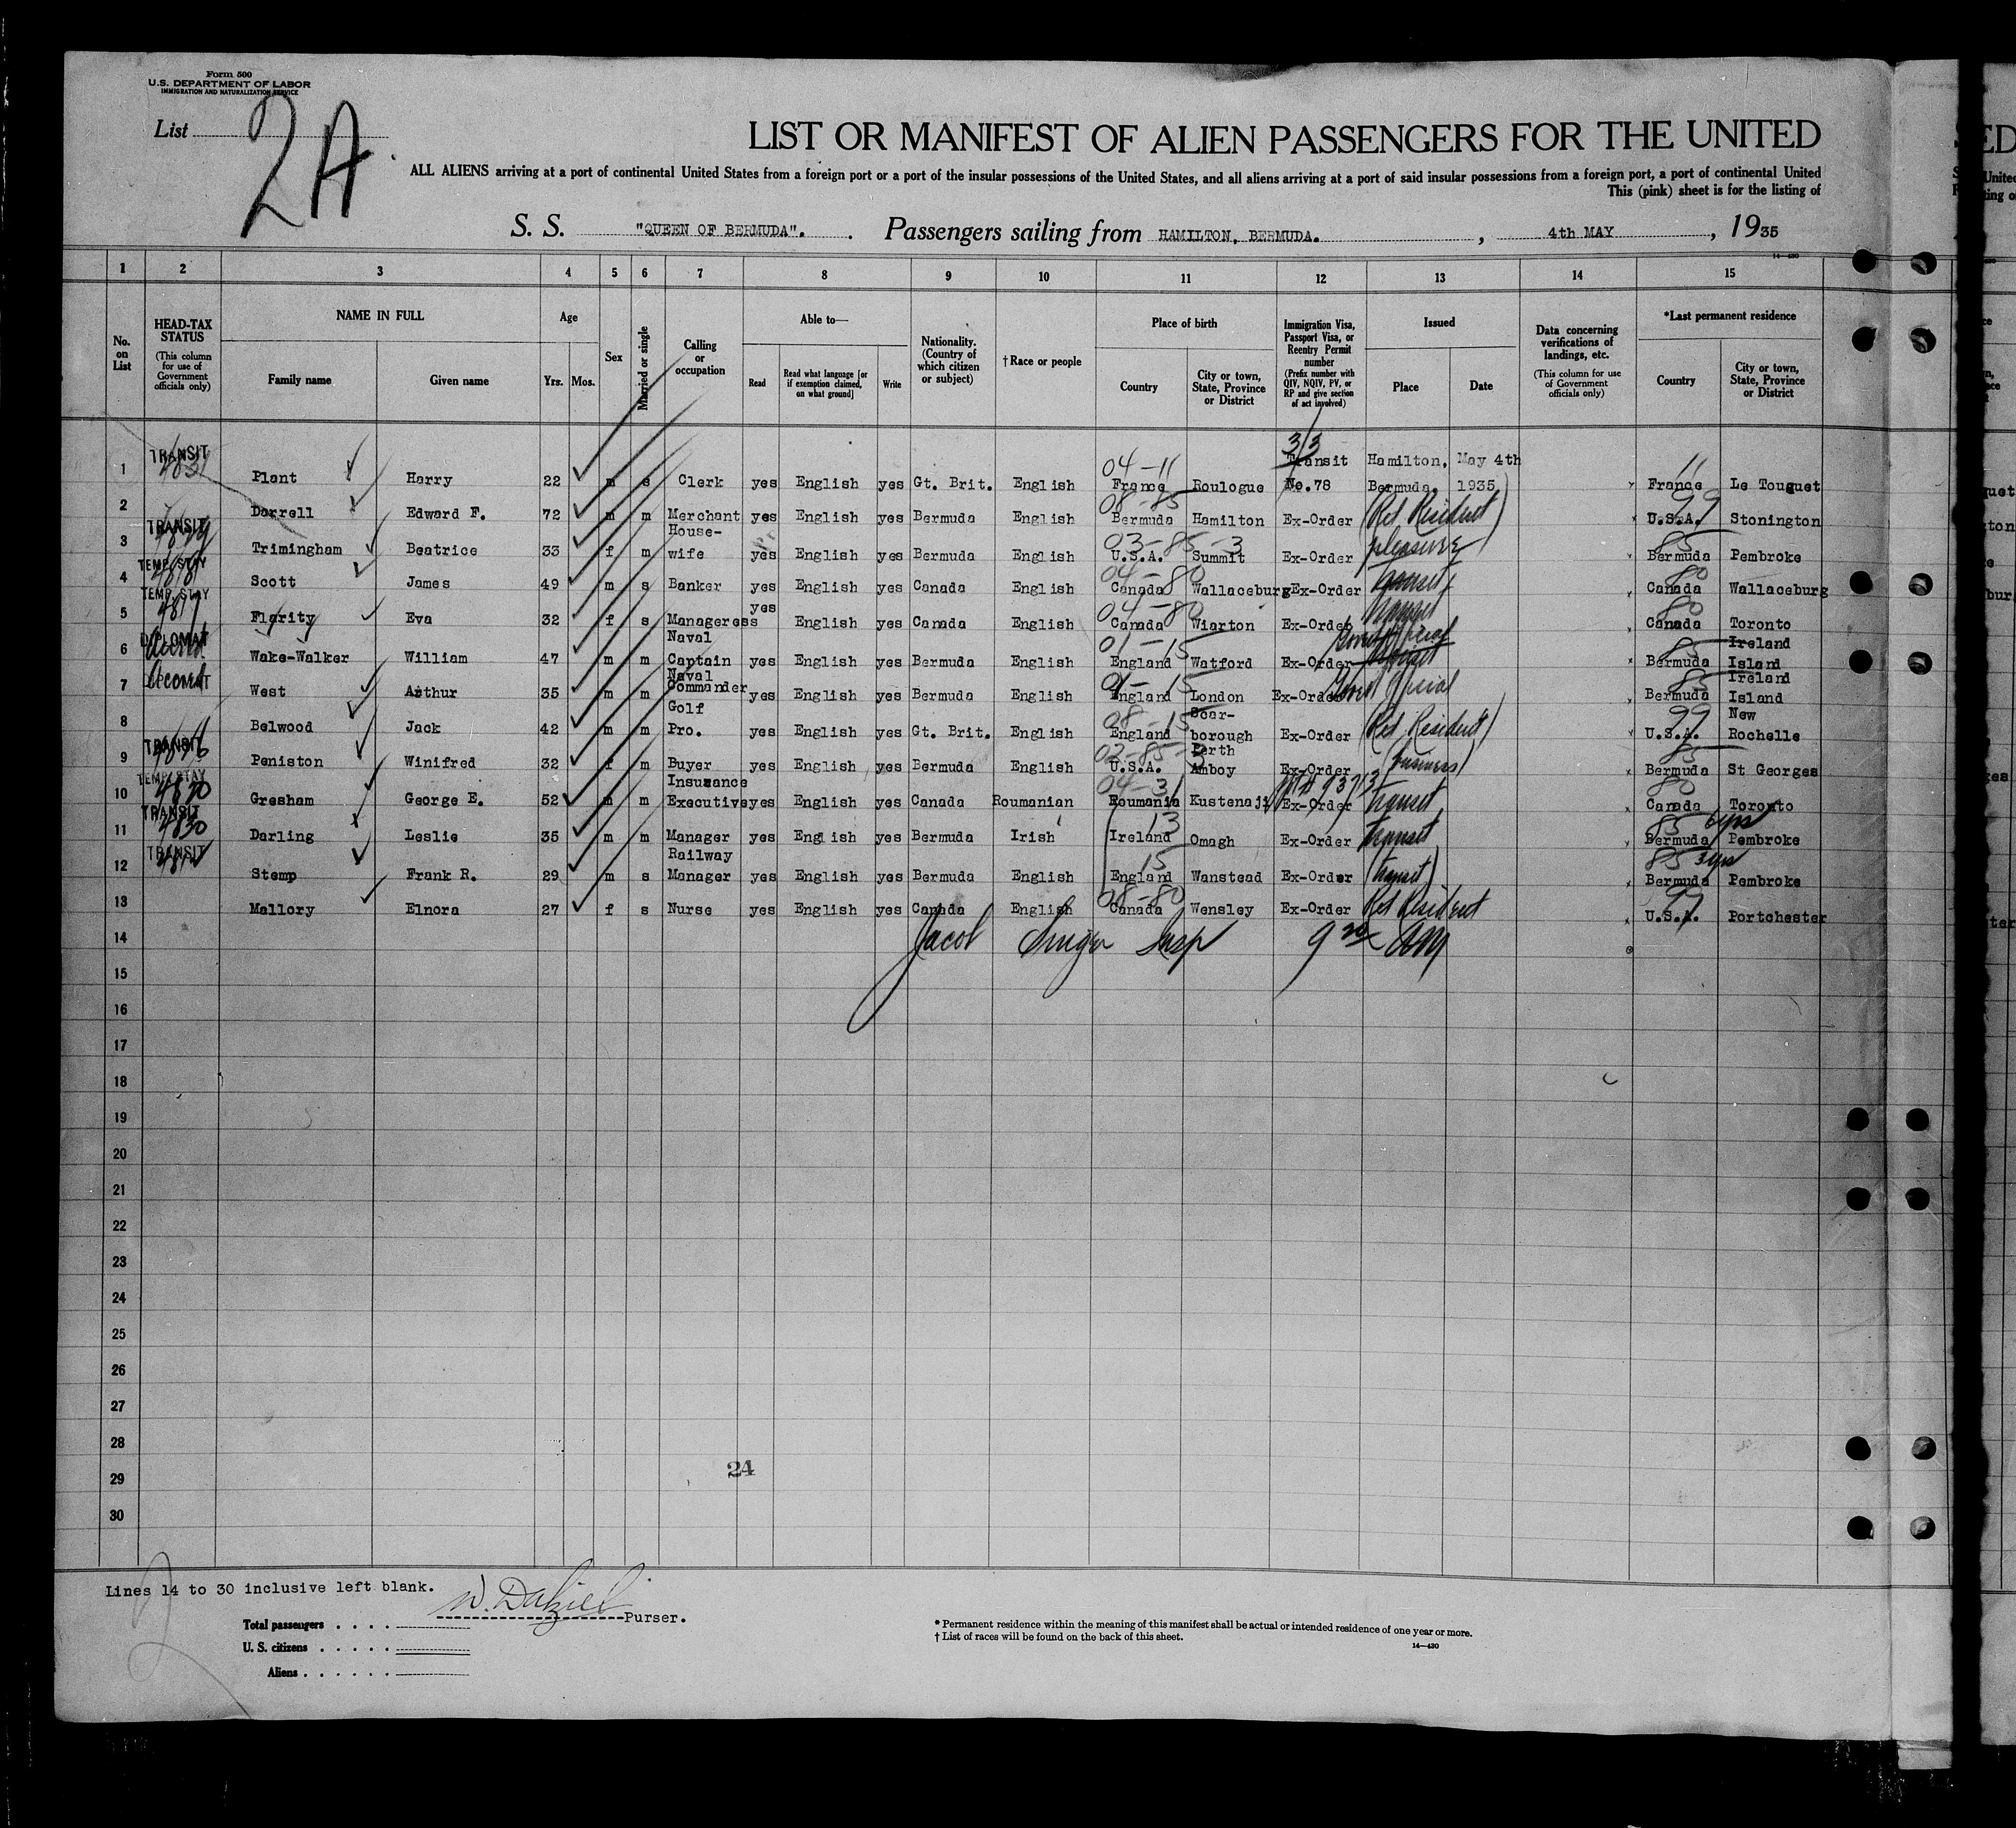 Form 500
U.S. DEPARTMENT OF LABOR
IMMIGRATION AND NATURALIZATION SERVICE
List 2A
LIST OR MANIFEST OF ALIEN PASSENGERS FOR THE UNITED
ALL ALIENS arriving at a port of continental United States from a foreign port or a port of the insular possessions of the United States, and all aliens arriving at a port of said insular possessions from a foreign port, a port of continental United
This (pink) sheet is for the listing of
S. S. "QUEEN OF BERMUDA". Passengers sailing from HAMILTON, BERMUDA. , 4th MAY , 1935
14-430
1 2 3 4 5 6 7 8 9 10 11 12 13 14 15
No. on List
HEAD-TAX STATUS (This column for use of Government officials only)
NAME IN FULL Family name Given name
Age Yrs. Mos.
Sex
Married or single
Calling or occupation
Able to— Read Read what language [or if exemption claimed, on what ground] Write
Nationality. (Country of which citizen or subject)
†Race or people
Place of birth Country City or town, State, Province or District
Immigration Visa, Passport Visa, or Reentry Permit number (Prefix number with QIV, NQIV, PV, or RP and give section of act involved)
Issued Place Date
Data concerning verifications of landings, etc. (This column for use of Government officials only)
*Last permanent residence Country City or town, State, Province or District
1 TRANSIT Plant Harry 22 m s Clerk yes English yes Gt. Brit. English 04-11 France Boulogue 3/3 Transit No.78 Hamilton, Bermuda. May 4th 1935 11 France Le Touquet
2 Darrell Edward F. 72 m m Merchant yes English yes Bermuda English 08-85 Bermuda Hamilton Ex-Order (Ret Resident) 99 U.S.A. Stonington
3 TRANSIT Trimingham Beatrice 33 f m House-wife yes English yes Bermuda English 03-85-3 U.S.A. Summit Ex-Order pleasure 85 Bermuda Pembroke
4 TEMP. STAY Scott James 49 m s Banker yes English yes Canada English 04-80 Canada Wallaceburg Ex-Order Transit 80 Canada Wallaceburg
5 TEMP. STAY 4817 Flarity Eva 32 f s Manageress yes English yes Canada English 04-80 Canada Wiarton Ex-Order Transit 80 Canada Toronto
6 DIPLOMAT Wake-Walker William 47 m m Naval Captain yes English yes Bermuda English 01-15 England Watford Ex-Order 85 Bermuda Ireland Island
7 West Arthur 35 m m Naval Commander yes English yes Bermuda English 01-15 England London Ex-Order 85 Bermuda Ireland Island
8 Belwood Jack 42 m m Golf Pro. yes English yes Gt. Brit. English 08-15 England Scar-borough Ex-Order (Ret Resident) 99 U.S.A. New Rochelle
9 TRANSIT Peniston Winifred 32 f m Buyer yes English yes Bermuda English 03-85-3 U.S.A. Perth Amboy Ex-Order (business) 85 Bermuda St Georges
10 TEMP. STAY Gresham George E. 52 m m Insurance Executive yes English yes Canada Roumanian 04-31 Roumania Kustenaji Ex-Order Transit 80 Canada Toronto
11 TRANSIT 4830 Darling Leslie 35 m m Manager yes English yes Bermuda Irish 13 Ireland Omagh Ex-Order Transit 85 6yrs Bermuda Pembroke
12 TRANSIT Stemp Frank R. 29 m s Railway Manager yes English yes Bermuda English 15 England Wanstead Ex-Order (Transit) 85 3yrs Bermuda Pembroke
13 Mallory Elnora 27 f s Nurse yes English yes Canada English 08-80 Canada Wensley Ex-Order Ret Resident 99 U.S.A. Portchester
14 Jacob Singer Insp 9 AM
15
16
17
18
19
20
21
22
23
24
25
26
27
28
29
30
24
Lines 14 to 30 inclusive left blank.
W. Dalziel Purser.
Total passengers . . . .
U. S. citizens . . . . .
Aliens . . . . . .
* Permanent residence within the meaning of this manifest shall be actual or intended residence of one year or more.
† List of races will be found on the back of this sheet.
14—430